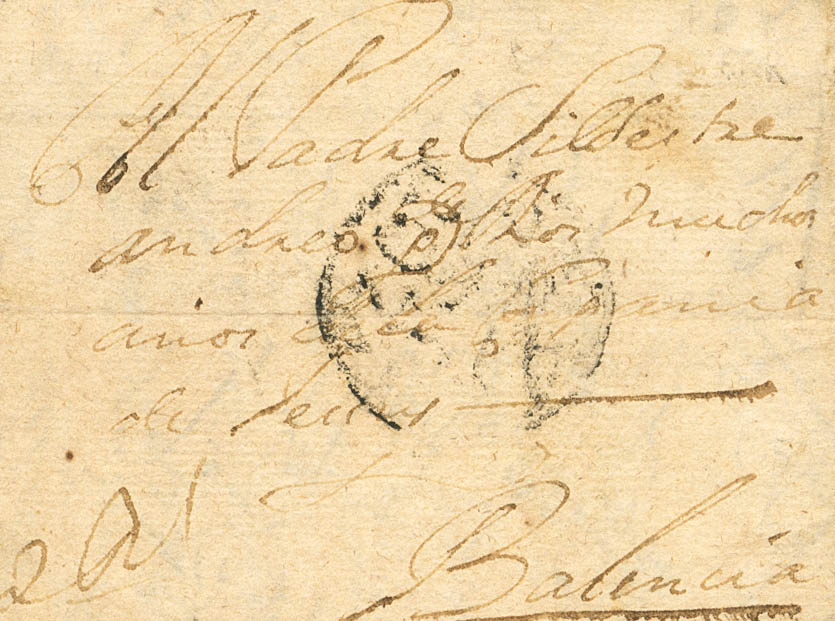 Al Padre Silbestre
andreo g Dios muchos
años de la Compania
de Jesus
Balencia